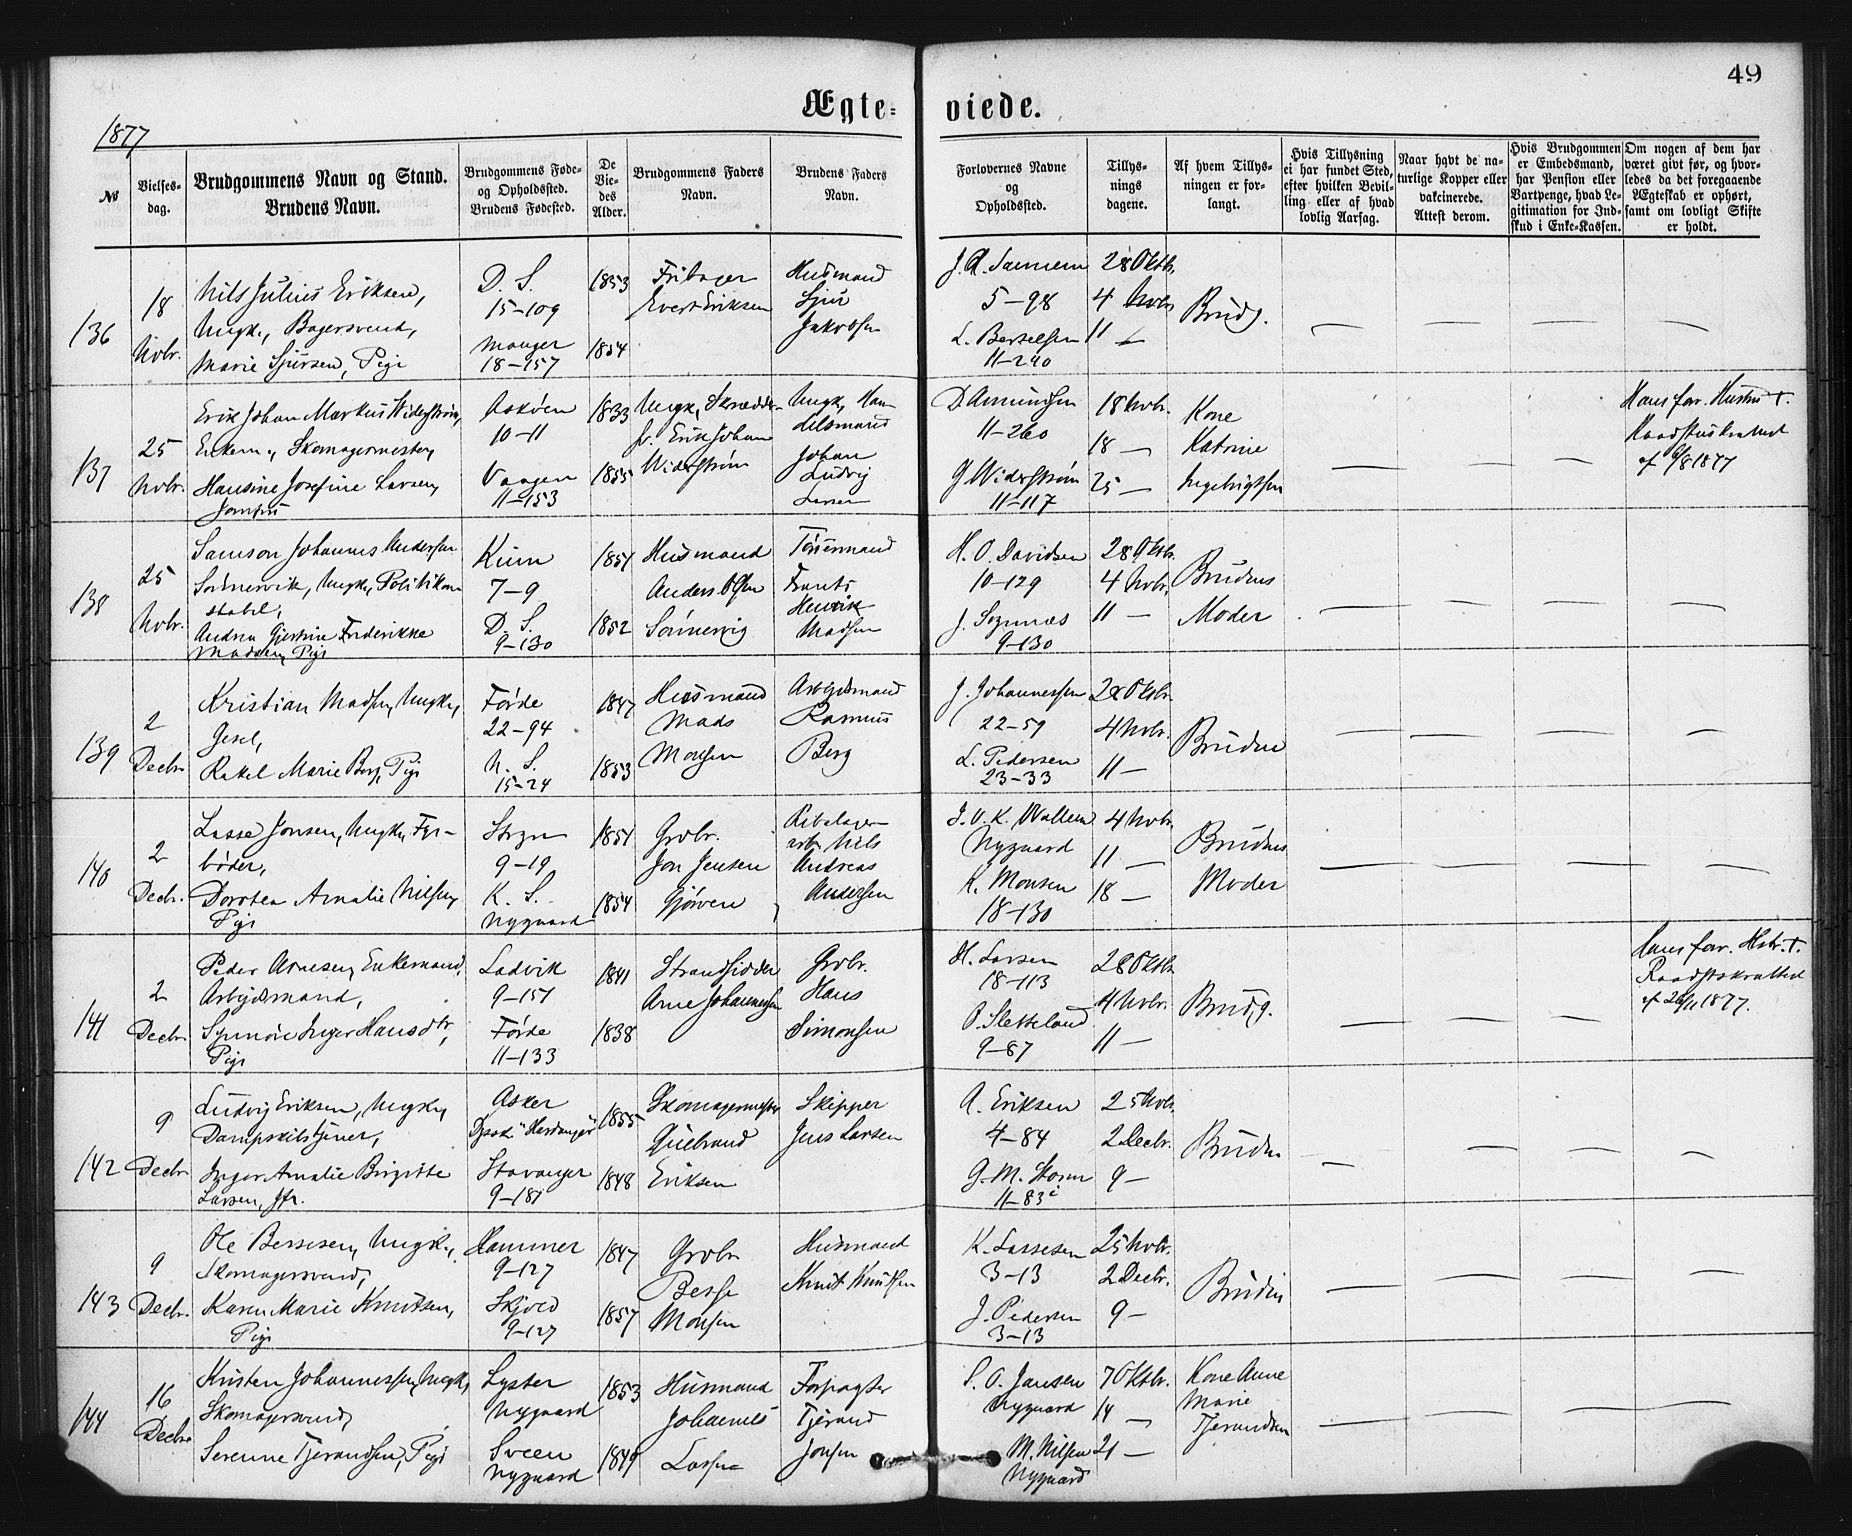 49
Ægte-viede.
1877
№
Vielses-
dag.
Brudgommens Navn og Stand.
Brudens Navn.
Brudgommens Føde-
og Opholdssted.
Brudens Fødested.
De
Vie-
des
Alder.
Brudgommens Faders
Navn.
Brudens Faders
Navn.
Forlovernes Navne
og
Opholdssted.
Tillys-
nings
dagene.
Af hvem Tillys-
ningen er for-
langt.
Hvis Tillysning
ei har fundet Sted,
efter hvilken Bevil-
ling eller af hvad
lovlig Aarsag.
Naar havt de na-
turlige Kopper eller
vakcinerede.
Attest derom.
Hvis Brudgommen
er Embedsmand,
har Pension eller
Vartpenge, hvad Le-
gitimation for Ind-
skud i Enke-Kassen.
Om nogen af dem har
været givt før, og hvor-
ledes da det foregaaende
Ægteskab er ophørt,
samt om lovligt Skifte
er holdt.
136
18
Novbr.
Nils Julius Eriksen,
Ungk., Bagersvend,
Marie Sjursen, Pige
D. S.
15-109
Manger
18-157
1853
1854
Evert Eriksen
Husmand
Sjur
Jakobsen
5-98
L. Bertelsen
11-240
28 Oktb.
4 Novbr.
11 —
Brudg.
137
25
Novbr.
Erik Johan Markus Widerstrøm,
Enkem., Skomagermester,
Hansine Josefine Larsen,
Jomfru
Askøen
10-11
Vaagen
11-153
1833
1855
Ungk. Skrædder-
sv. Erik Johan
Widerstrøm
Ungk. Han-
delsmand
Johan
Ludvig
Larsen
D. Amundsen
11-260
G. Widerstrøm
11-117
18 Novbr.
18 —
25 —
Kone
Katrine
Ingebrigtsen
Hans for. Hustru †.
af 9/8 1877
138
25
Novbr.
Samson Johannes Andersen
Sørnervik, Ungk., Politikon-
stabel,
Andrea Gjertine Frederikke
Madsen, Pige
Kinn
7-9
D. S.
9-130
1851
1852
Husmand
Anders Olsen
Sørnervig
Tømmermand
Frants
Henrik
Madsen
H. O. Davidsen
10-129
J. Sognnæs
9-130
28 Oktb.
4 Novbr.
11 —
Brudens
Moder
139
2
Decbr.
Kristian Madsen, Ungk.,
Gesel,
Rakel Marie Berg, Pige
Førde
22-94
N. S.
15-24
1847
1853
Husmand
Mads
Monsen
Arbejdsmand
Rasmus
Berg
J. Johannessen
22-59
L. Pedersen
23-33
28 Oktbr.
4 Novbr.
11 —
Bruden
140
2
Decbr.
Lasse Jonsen, Ungk., Fyr-
bøder,
Dorotea Amalie Nilsen,
Pige
9-19
K. S.
Nygaard
1851
1854
Grdbr.
Jon Jensen
Gjørven
Nils
Andreas
Andersen
J. O. K. Wallem
Nygaard
K. Monsen
18-130
4 Novbr.
11 —
18 —
Brudens
Moder
141
2
Decbr.
Peder Arnesen, Enkemand,
Arbejdsmand,
Synnøve Inger Hansdtr,
Pige
Ladvik
9-151
Førde
11-133
1841
1838
Strandsidder
Arne Johannessen
Grdbr.
Hans
Simonsen
H. Larsen
18-113
O. Sletteland
9-87
28 Oktb.
4 Novbr.
11 —
Brudg.
Hans for. Hstr. †.
af 26/11 1877.
142
9
Decbr.
Ludvig Eriksen, Ungk.,
Dampskibstjener,
Inger Amalie Birgitte
Larsen, Jfr.
Asker
Dpsk. "Hardanger"
Stavanger
9-181
1855
1848
Skomagermester
Gulbrand
Eriksen
Skipper
Jens Larsen
A. Eriksen
4-84
G. M. Storm
11-83
25 Novb.
2 Decbr.
9 —
Bruden
143
9
Decbr.
Ole Bersesen, Ungk.,
Skomagersvend,
Karen Marie Knutsen,
Pige
Hammer
9-127
Skjold
9-127
1847
1857
Grdbr
Berse
Monsen
Husmand
Knut Knutsen
K. Lassesen
3-13
J. Pedersen
3-13
25 Novbr.
2 Decbr.
9 —
Bruden
144
16
Decbr.
Kristen Johannessen, Ungk.,
Skomagersvend,
Serenne Tjerandsen, Pige
Lyster
Nygaard
Sveen
Nygaard
1853
1849
Husmand
Johannes
Lassen
Forpagter
Tjerand
Jonsen
S. O. Jansen
Nygaard
M. Nilsen
Nygaard
7 Oktbr.
14 —
21 —
Kone Anne
Marie
Tjerandsen